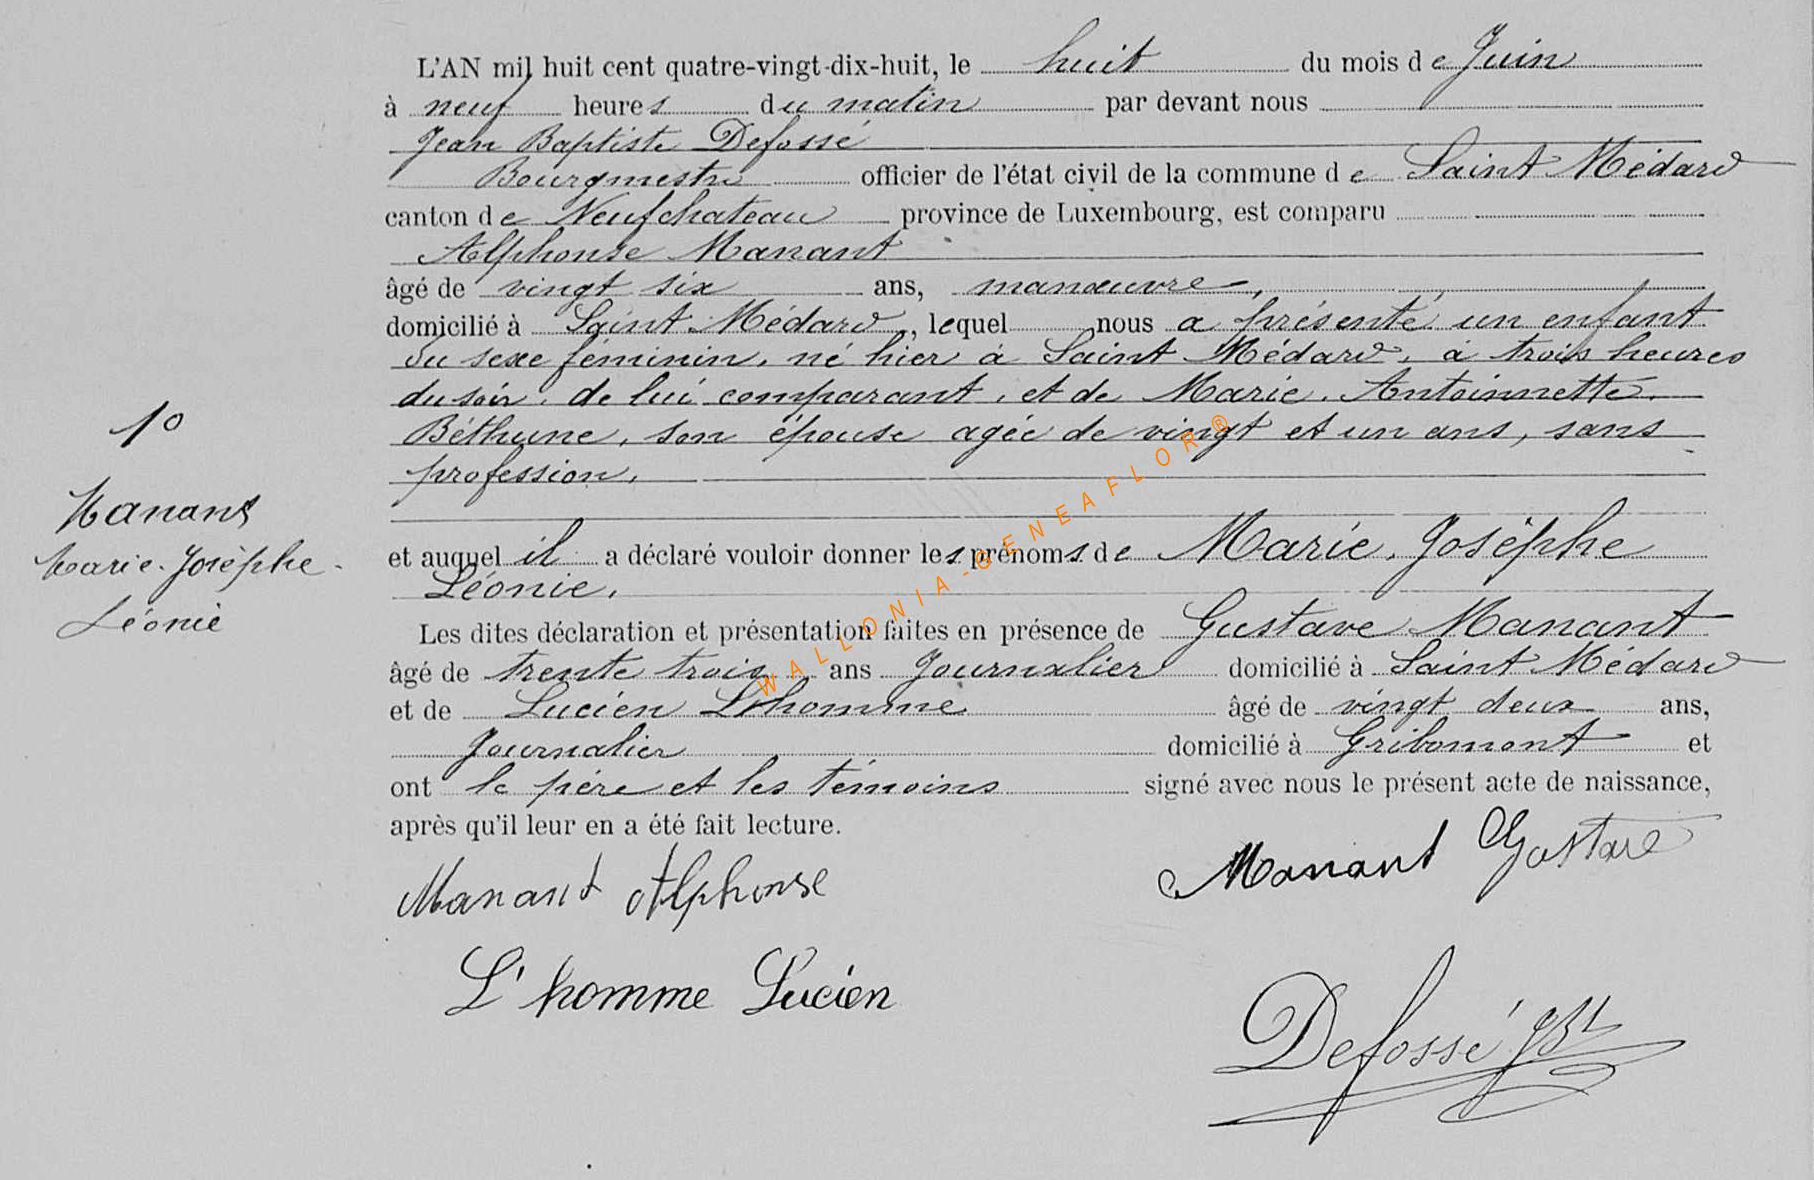 L'AN mil huit cent quatre-vingt-dix-huit, le huit du mois de Juin
à neuf heures du matin par devant nous
Jean Baptiste Defossé
Bourgmestre officier de l'état civil de la commune de Saint Médard
canton de Neufchateau province de Luxembourg, est comparu
Alphonse Manant
âgé de vingt six ans, manœuvre,
domicilié à Saint Médard, lequel nous a présenté un enfant
du sexe féminin, né hier à Saint Médard, à trois heures
du soir, de lui comparant, et de Marie, Antoinnette,
Béthune, son épouse agée de vingt et un ans, sans
profession,
1º
Manant
Marie-Josèphe-
Léonie
et auquel il a déclaré vouloir donner les prénoms de Marie, Josèphe
Léonie,
Les dites déclaration et présentation faites en présence de Gustave Manant
âgé de trente trois ans Journalier domicilié à Saint Médard
et de Lucien Lhomme âgé de vingt deux ans,
Journalier domicilié à Gribomont et
ont le père et les témoins signé avec nous le présent acte de naissance,
après qu'il leur en a été fait lecture.
Manant Alphonse
Manant Gustave
L'homme Lucien
Defossé JBt
WALLONIA-GENEAFLOR®